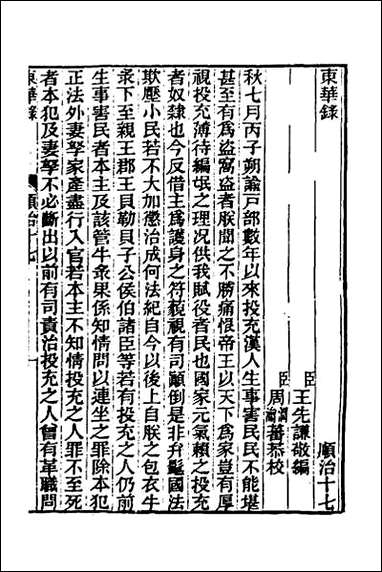 東華錄
順治十七
臣王先謙敬編
臣周潤蕃周瀹蕃恭校
秋七月丙子朔諭戶部數年以來投充漢人生事害民民不能堪
甚至有為盜窩盜者朕聞之不勝痛恨帝王以天下為家豈有厚
視投充薄待編氓之理况供我賦役者民也國家元氣賴之投充
者奴隸也今反借主為護身之符藐視有司顛倒是非弁髦國法
欺壓小民若不大加懲治成何法紀自今以後上自朕之包衣牛
彔下至親王郡王貝勒貝子公侯伯諸臣等若有投充之人仍前
生事害民者本主及該管牛彔果係知情問以連坐之罪除本犯
正法外妻孥家產盡行入官若本主不知情投充之人罪不至死
者本犯及妻孥不必斷出以前有司責治投充之人曾有革職問
東華錄
順治十七
一